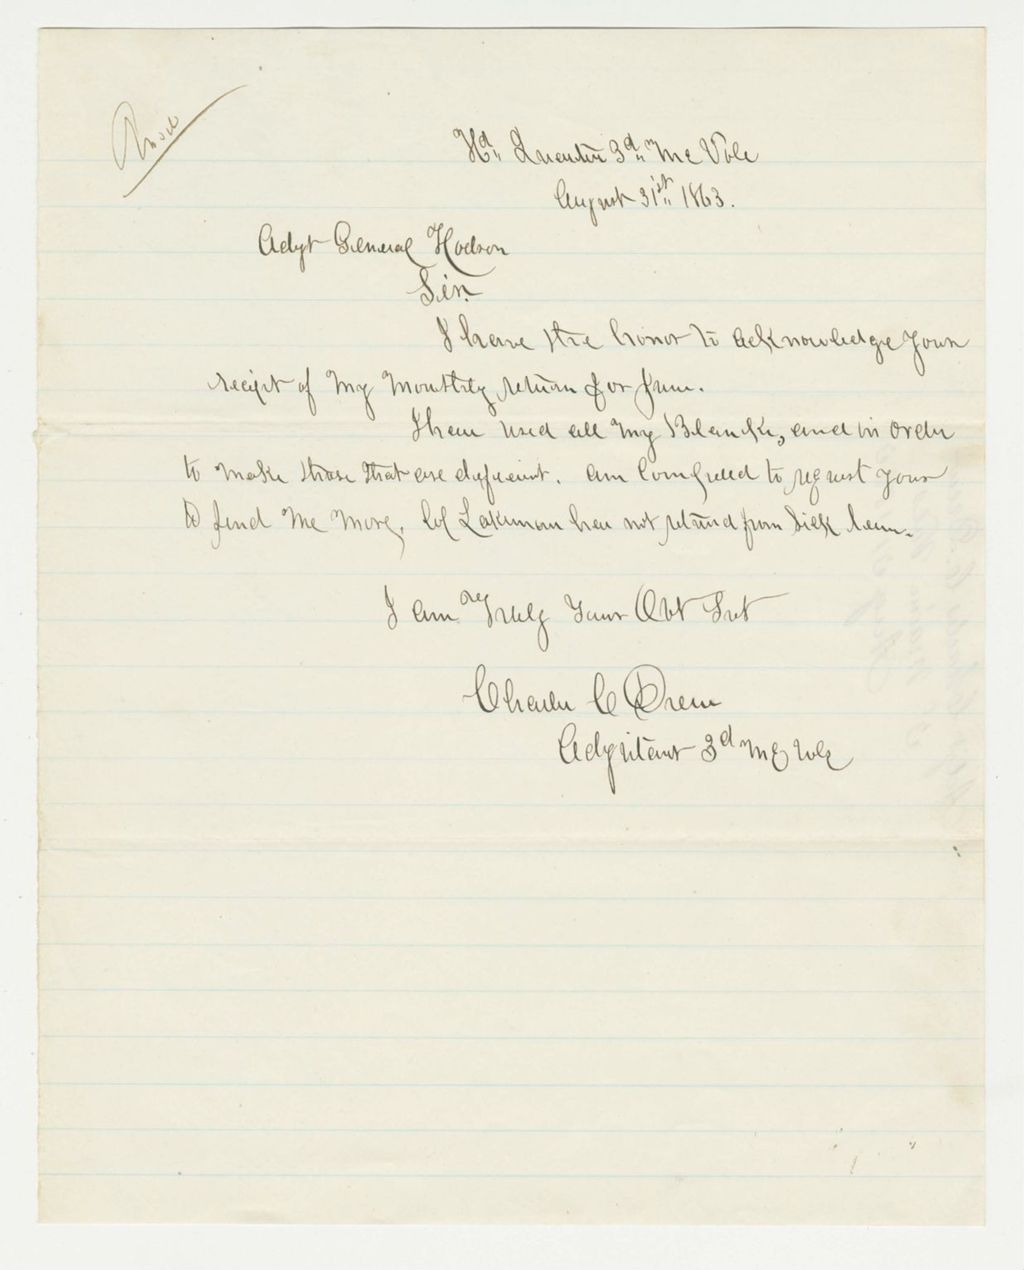 Hd. Quarters 3d. Me Vols
August 31st. 1863.
Adjt General Hodsdon
Sir.
I have the honor to acknowledge your
receipt of my monthly return for June.
I have used all my Blanks, and in order
to make those that are deficient. am compelled to request your
to send me more. Col Lakeman has not returnd from Sick leave.
I am Truly Your Obt Svt
Charles C Drew
Adjutant 3d Me Vols